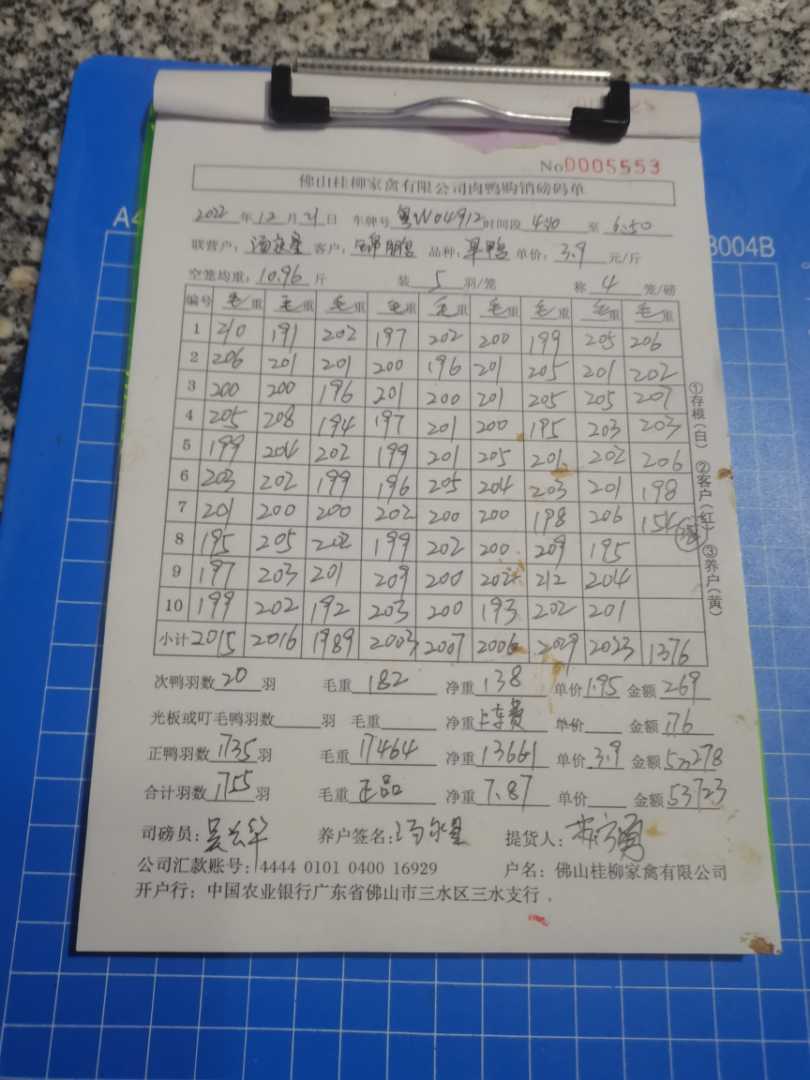 No0005553
佛山桂柳家禽有限公司肉鸭购销磅码单
2022年12月21日 车牌号 粤W04912 时间段 4:40 至 6:50
A4 3004B
联营户: 客户: 品种: 单价: 3.9 元/斤
空笼均重: 10.96 斤 装 5 羽/笼 称 4 笼/磅
编号 毛重 毛重 毛重 毛重 毛重 毛重 毛重 毛重 毛重
1 210 191 202 197 202 200 199 205 206
2 206 201 201 200 196 201 205 201 202
3 200 200 196 201 200 201 205 205 207
4 205 208 194 197 201 200 195 203 203
5 199 204 202 199 201 205 201 202 206
6 203 202 199 196 205 204 203 201 198
7 201 200 200 202 200 200 198 206 154
8 195 205 202 199 202 200 209 195
9 197 203 201 209 200 202 212 204
10 199 202 192 203 200 193 202 201
小计 2015 2016 1989 2003 2007 2006 2029 2023 1376
①存根(白) ②客户(红) ③养户(黄)
次鸭羽数 20 羽 毛重 182 净重 138 单价 1.95 金额 269
光板或叮毛鸭羽数 羽 毛重 净重 上车费 单价 金额 176
正鸭羽数 1735 羽 毛重 17464 净重 13661 单价 3.9 金额 53278
合计羽数 1755 羽 毛重 正品 净重 7.87 单价 金额 53723
司磅员: 养户签名: 提货人:
公司汇款账号: 4444 0101 0400 16929 户名: 佛山桂柳家禽有限公司
开户行: 中国农业银行广东省佛山市三水区三水支行